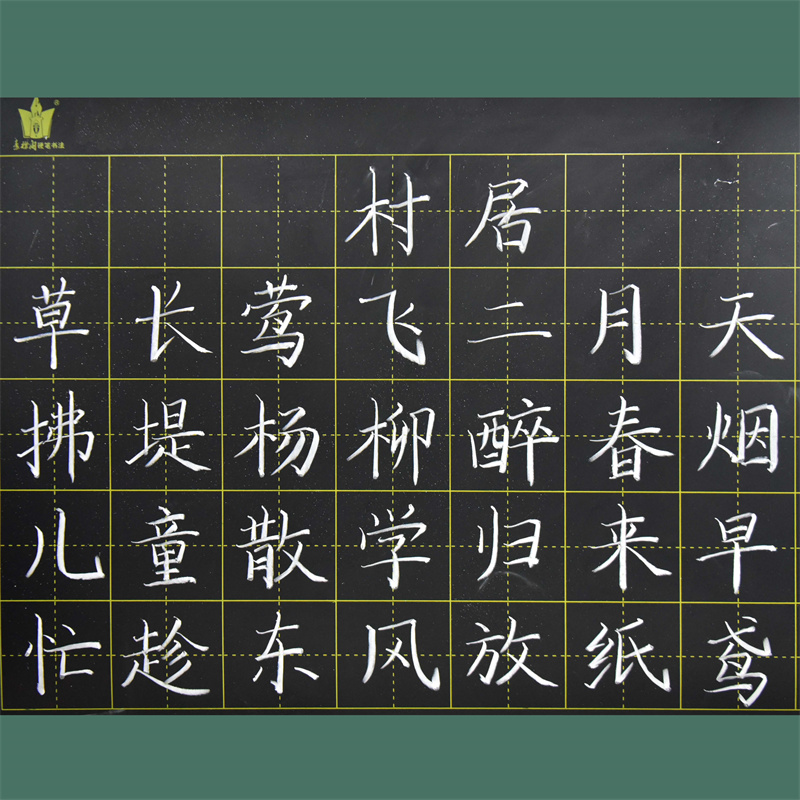 硬笔书法
村居
草长莺飞二月天
拂堤杨柳醉春烟
儿童散学归来早
忙趁东风放纸鸢